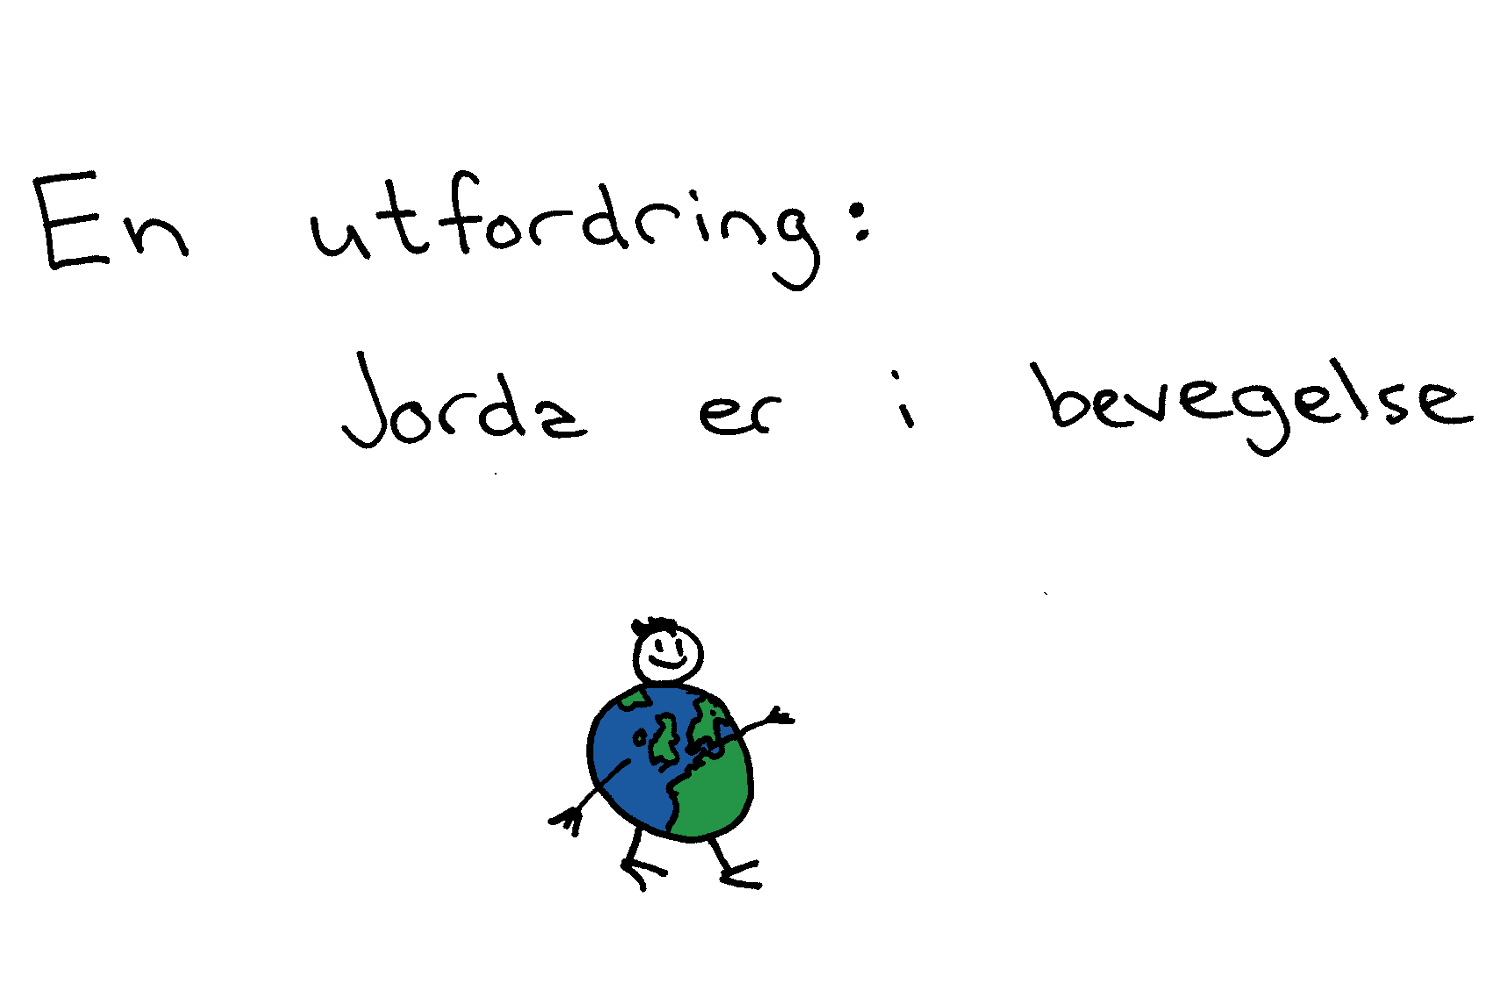 En utfordring:
Jorda er i bevegelse